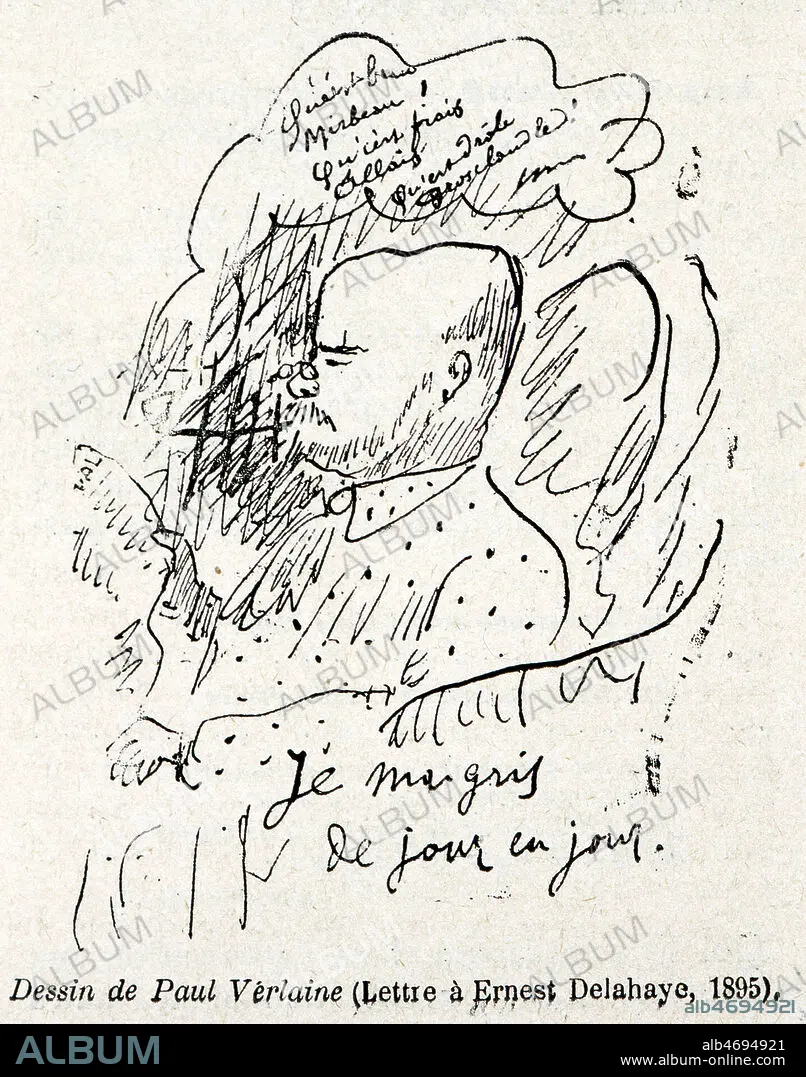 Qu'est beau
Mirbeau !
Qu'est frais
Allais
Qu'est drôle
Grosclaude !
Jou
Je maigris
de jour en jour.
Dessin de Paul Verlaine (Lettre à Ernest Delahaye, 1895).
alb4694921
ALBUM
alb4694921
www.album-online.com